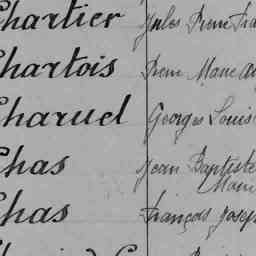 Chartier Jules Pierre Fra
Chartois Pierre Marie Au
Charuel Georges Louis
Chas Jean Baptiste
Marie
Chas François Josep